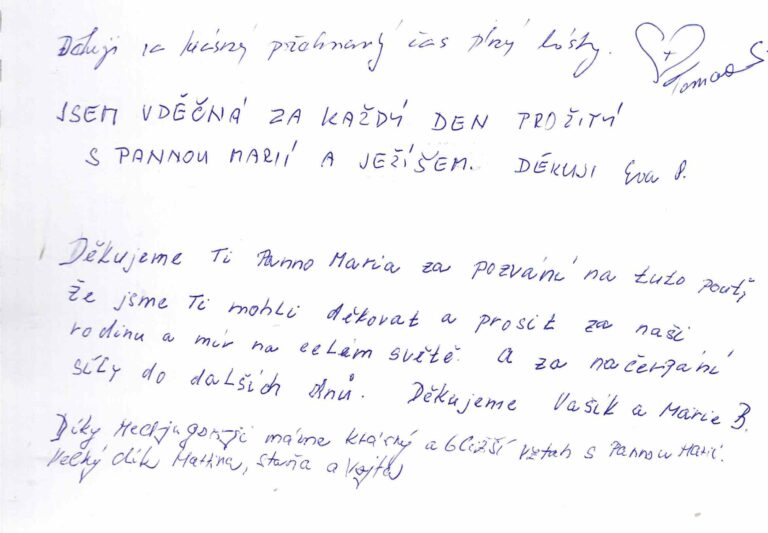 Děkuji za krásný přežívaný čas plný lásky. Tomáš S.
JSEM VDĚČNÁ ZA KAŽDÝ DEN PROŽITÝ
S PANNOU MARIÍ A JEŽÍŠEM. DĚKUJI Eva P.
Děkujeme Ti Panno Maria za pozvání na tuto pouť,
že jsme Ti mohli děkovat a prosit za naši
rodinu a mír na celém světě. A za načerpání
síly do dalších dnů. Děkujeme Vašik a Marie B.
Díky Medjugorji máme krásný a bližší vztah s Pannou Marií.
Velký dík Martina, Stáňa a Vojta